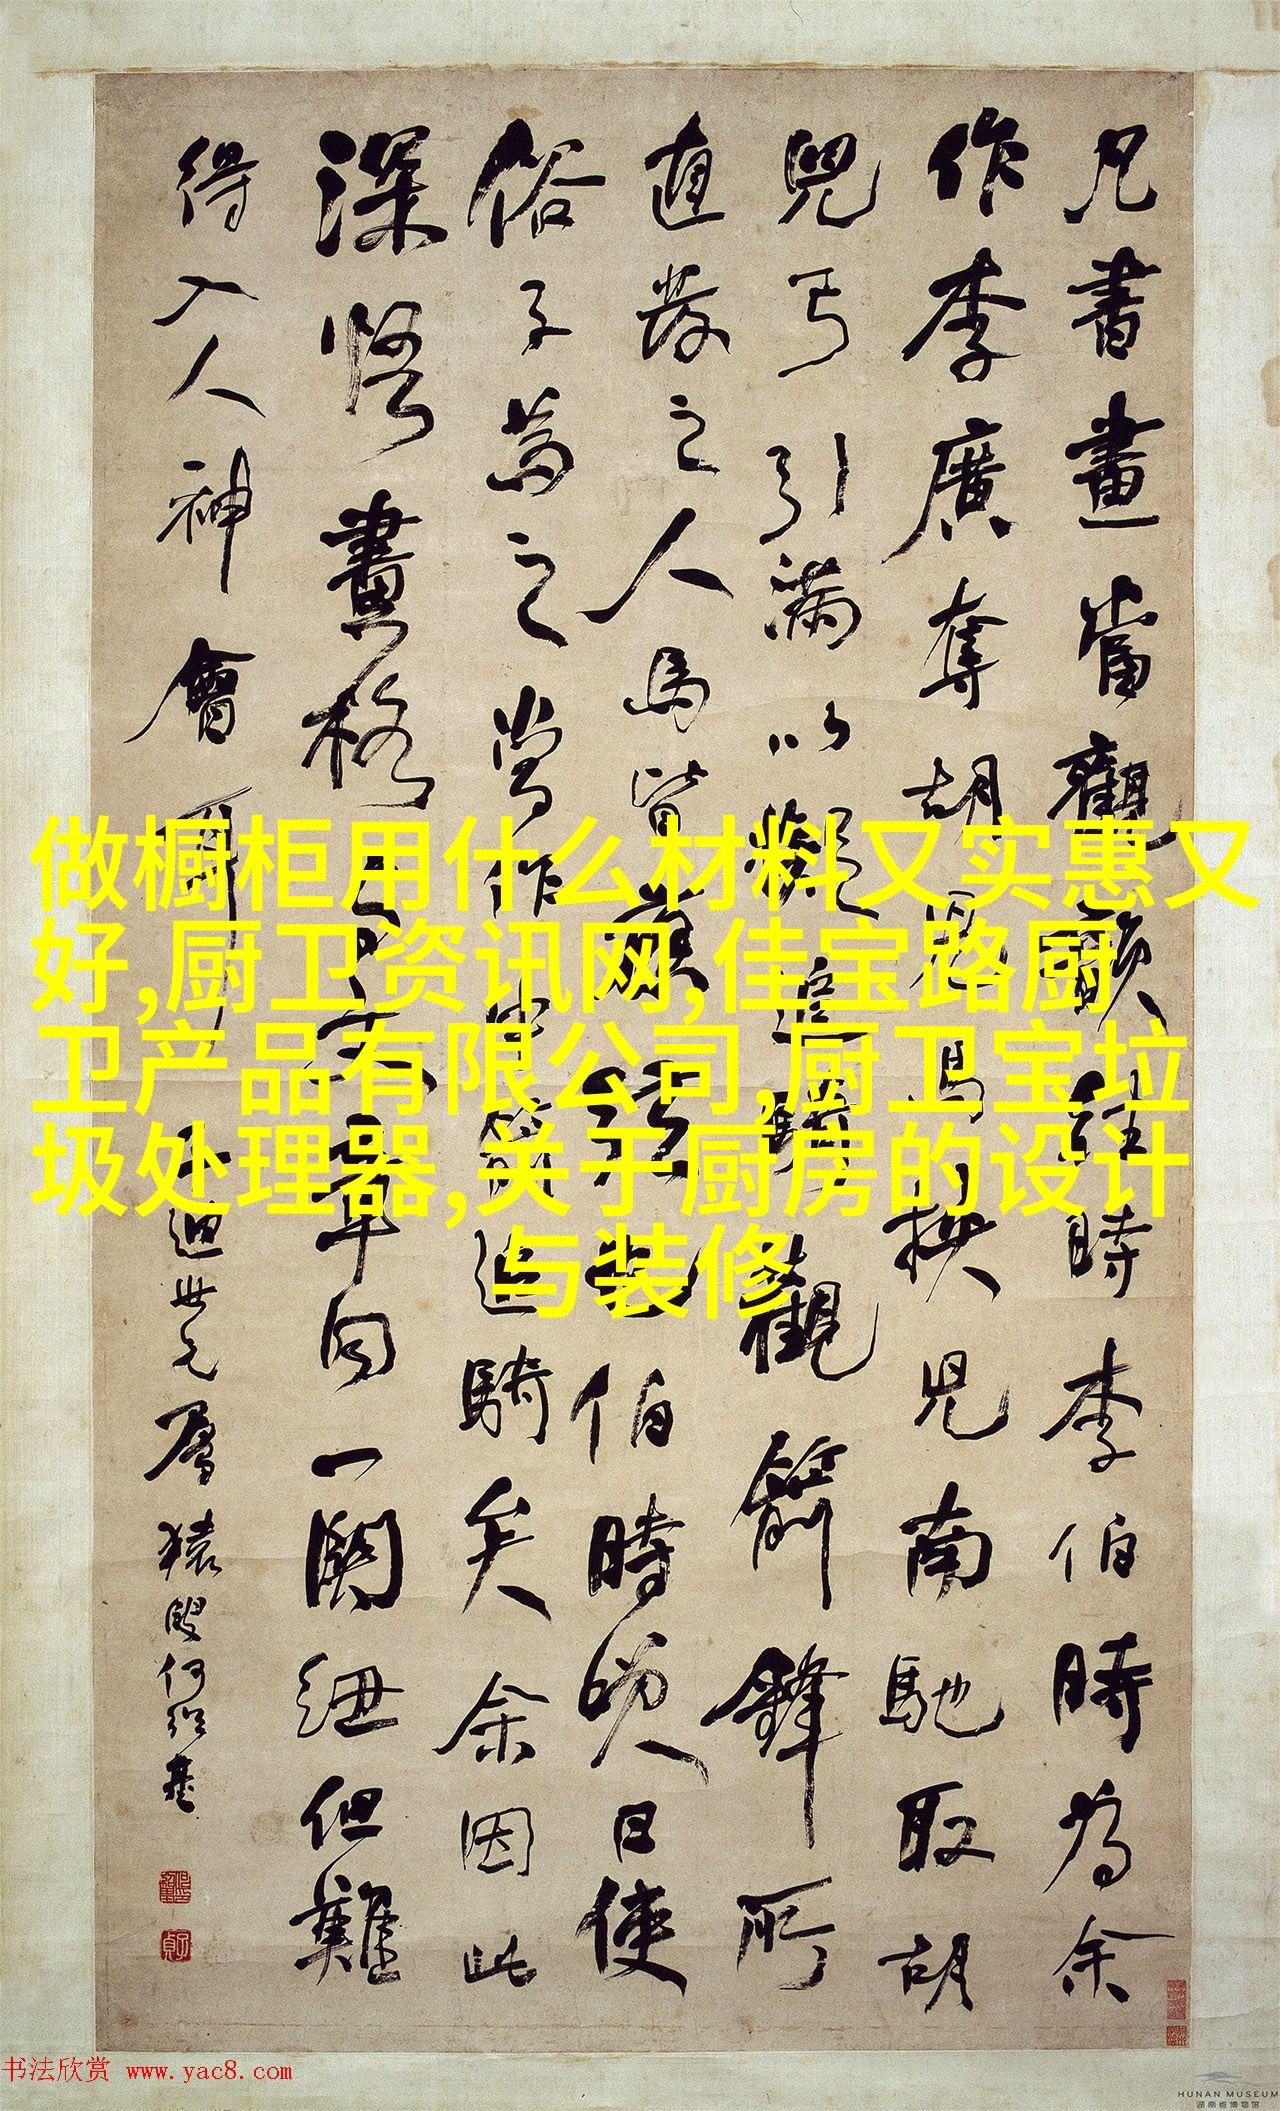 凡書畫當觀韻往時李伯時為余
作李廣奪胡兒馬挾兒南馳取胡
兒弓引滿以擬追騎觀箭鋒所
直發之人馬皆應弦也伯時笑曰使
俗子為之當作中箭追騎矣余因此
深悟畫格與文章同一關紐但難
得入人神會耳
迪世兄屬 猿叟何紹基
做橱柜用什么材料又实惠又
好,厨卫资讯网,佳宝路厨
卫产品有限公司,厨卫宝垃
圾处理器,关于厨房的设计
与装修
书法欣赏 www.yac8.com
HUNAN MUSEUM
湖南省博物馆